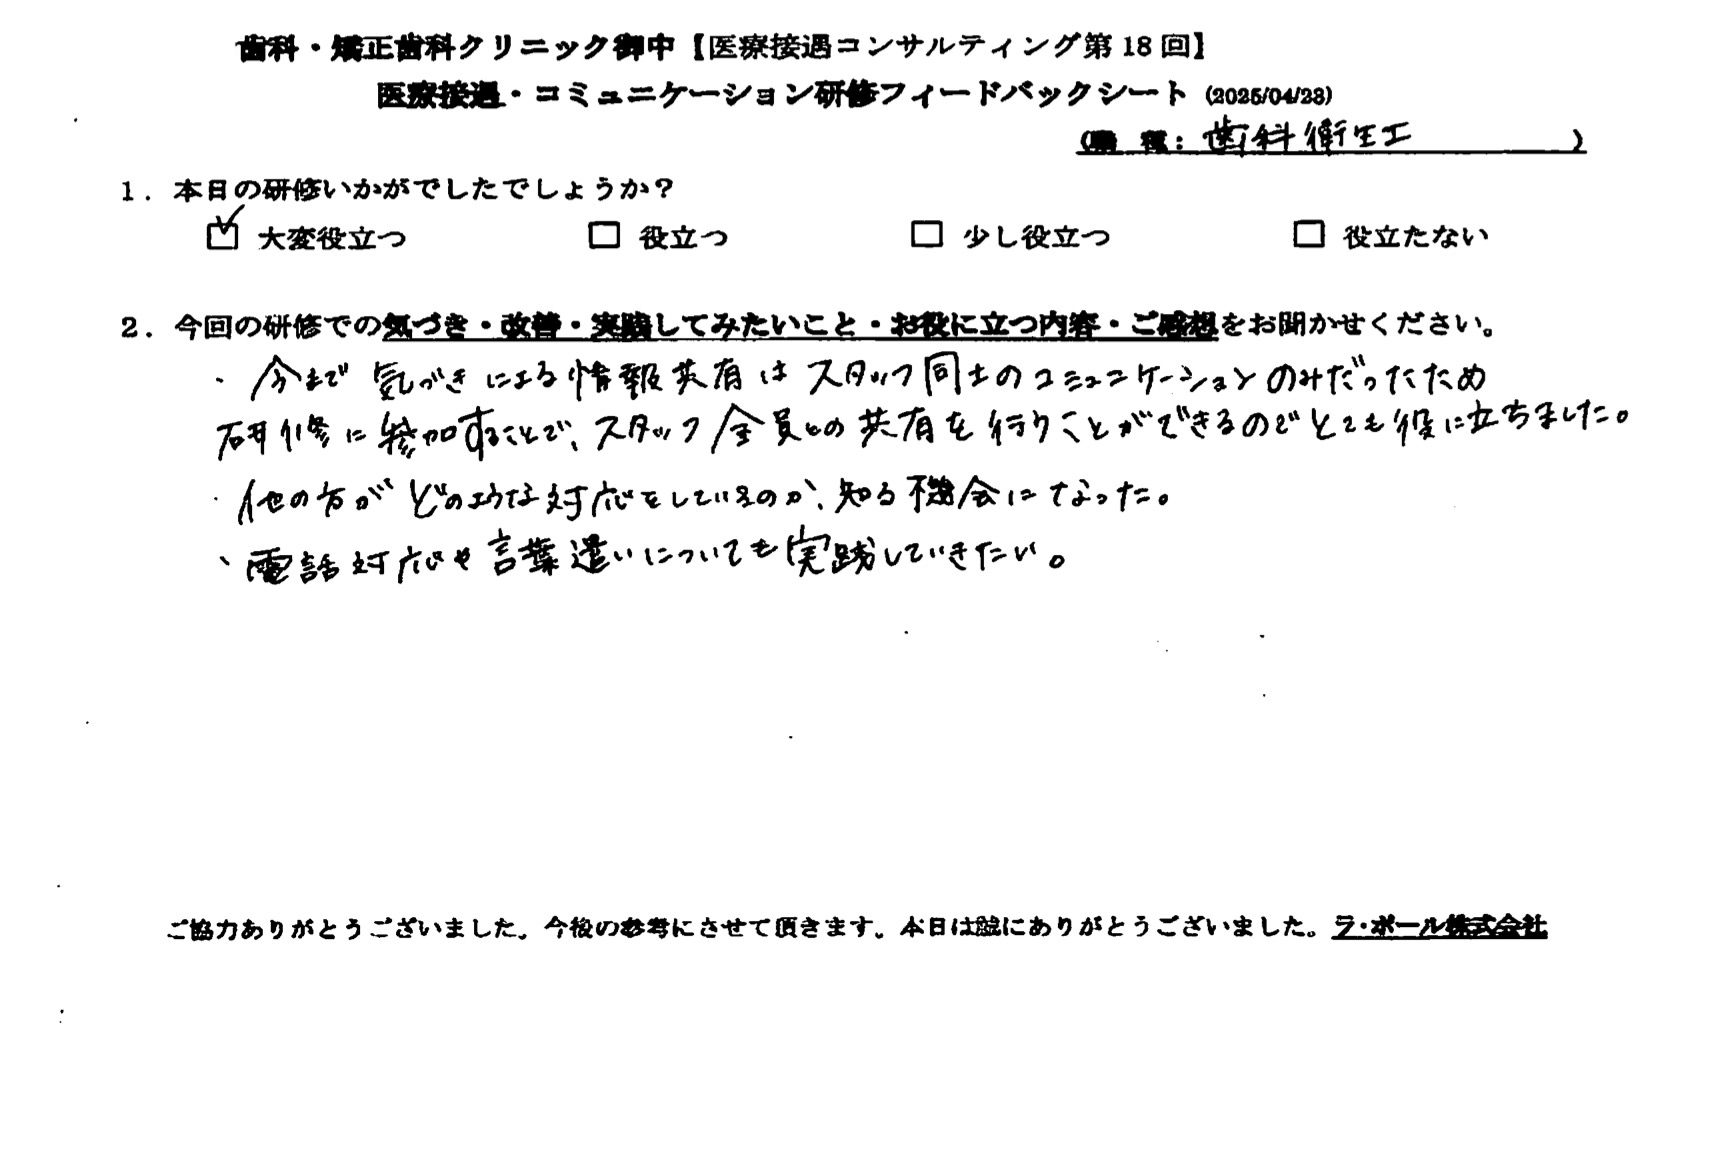 歯科・矯正歯科クリニック御中【医療接遇コンサルティング第 18 回】
医療接遇・コミュニケーション研修フィードバックシート (2025/04/23)
(職 種: 歯科衛生工 )
1. 本日の研修いかがでしたでしょうか?
☑ 大変役立つ □ 役立つ □ 少し役立つ □ 役立たない
2. 今回の研修での気づき・改善・実践してみたいこと・お役に立つ内容・ご感想をお聞かせください。
・今まで気づきによる情報共有はスタッフ同士のコミュニケーションのみだったため
研修に参加することで、スタッフ全員との共有を行うことができるのでとても役に立ちました。
・他の方がどのような対応をしているのか、知る機会になった。
、電話対応や言葉遣いについても実践していきたい。
ご協力ありがとうございました。今後の参考にさせて頂きます。本日は誠にありがとうございました。ラ・ポール株式会社